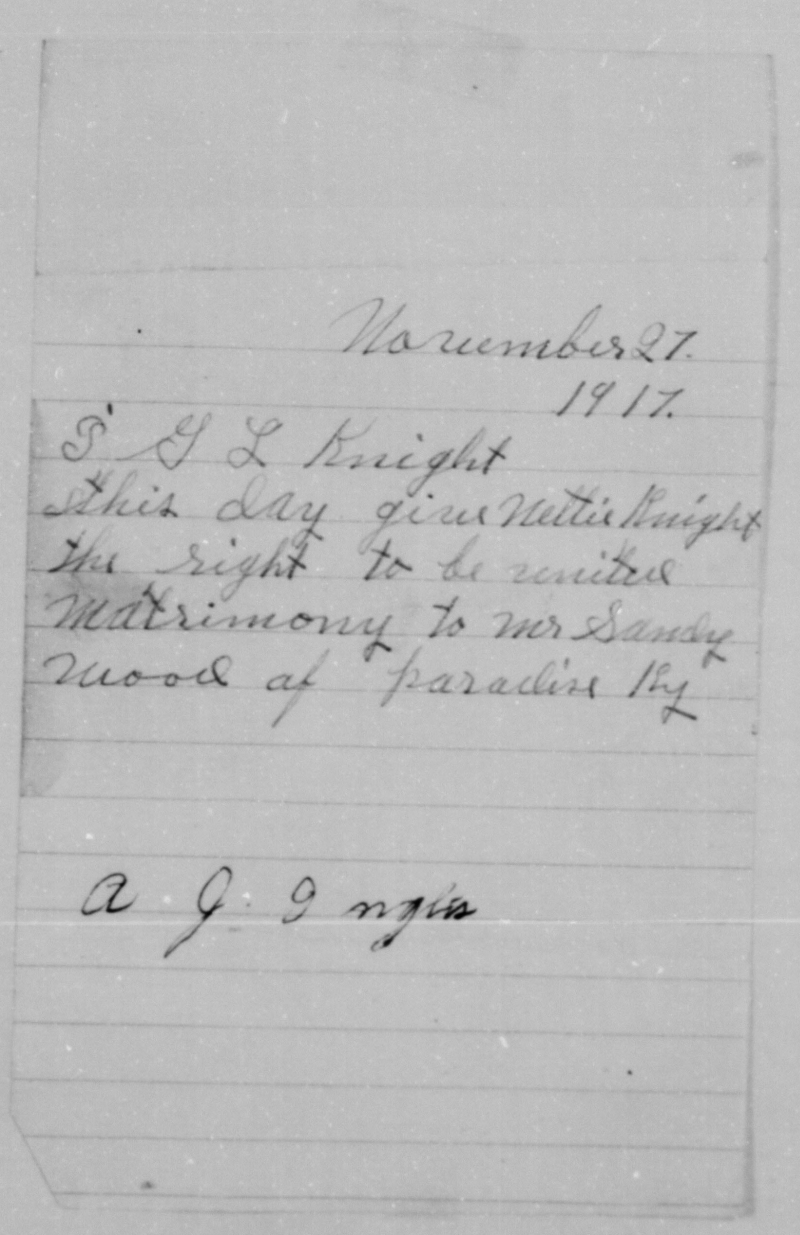 November 27.
1917.
I G L Knight
this day give Nettie Knight
the right to be united
Matrimony to mr Sandy
Wood of paradise Ky
A J. Ingles